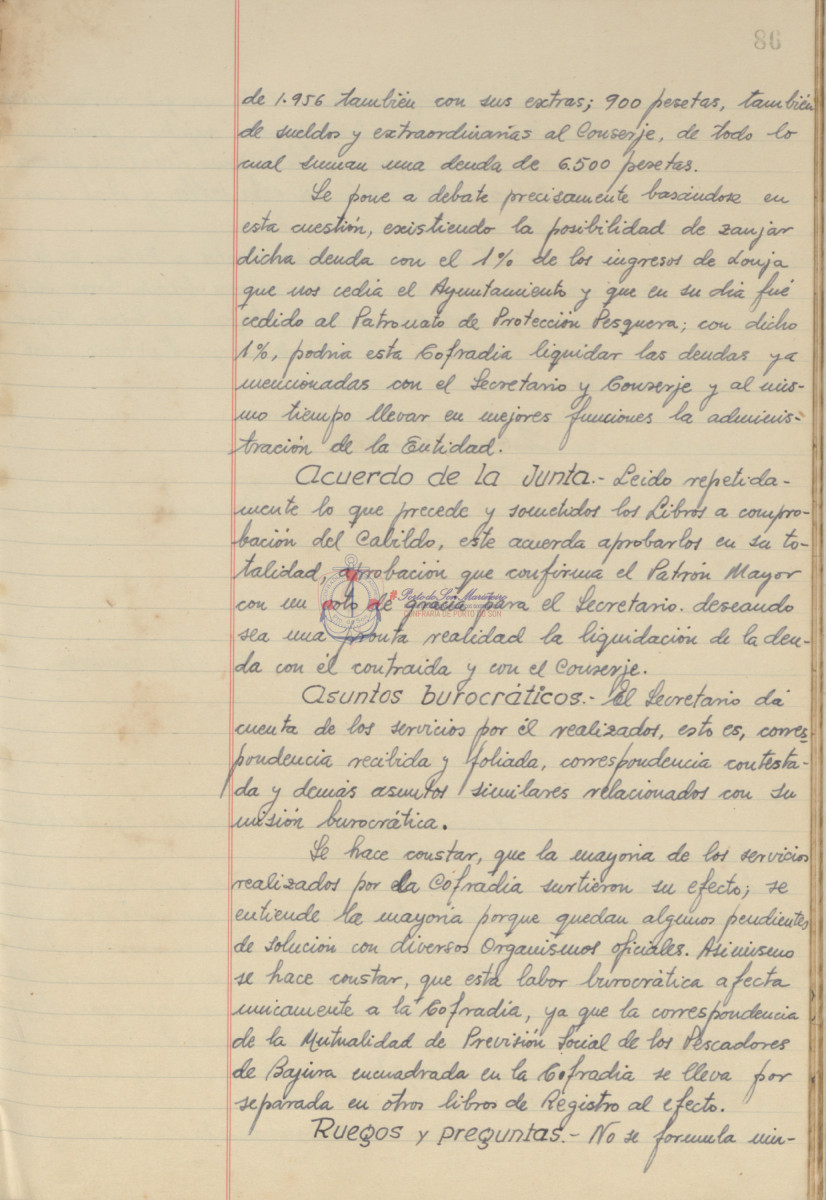 86
de 1.956 también con sus extras; 900 pesetas, también
de sueldos y extraordinarias al Conserje, de todo lo
cual suman una deuda de 6.500 pesetas.
Se pone a debate precisamente basándose en
esta cuestión, existiendo la posibilidad de zanjar
dicha deuda con el 1% de los ingresos de Lonja
que nos cedía el Ayuntamiento y que en su día fué
cedido al Patronato de Protección Pesquera; con dicho
1%, podría esta Cofradía liquidar las deudas ya
mencionadas con el Secretario y Conserje y al mis-
mo tiempo llevar en mejores funciones la adminis-
tración de la Entidad.
Acuerdo de la Junta.- Leido repetida-
mente lo que precede y sometidos los Libros a compro-
bación del Cabildo, este acuerda aprobarlos en su to-
talidad, aprobación que confirma el Patrón Mayor
con un voto de gracia para el Secretario. deseando
sea una pronta realidad la liquidación de la deu-
da con él contraida y con el Conserje.
Asuntos burocráticos.- El Secretario dá
cuenta de los servicios por él realizados, esto es, corres-
pondencia recibida y foliada, correspondencia contesta-
da y demás asuntos similares relacionados con su
misión burocrática.
Se hace constar, que la mayoria de los servicios
realizados por la Cofradía surtieron su efecto; se
entiende la mayoria porque quedan algunos pendientes
de solución con diversos Organismos oficiales. Asimismo
se hace constar, que esta labor burocrática afecta
unicamente a la Cofradía, ya que la correspondencia
de la Mutualidad de Previsión Social de los Pescadores
de Bajura encuadrada en la Cofradia se lleva por
separada en otros libros de Registro al efecto.
Ruegos y preguntas.- No se formula nin-
Porto do Son Mariñeiro
CONFRARÍA DE PORTO DO SON